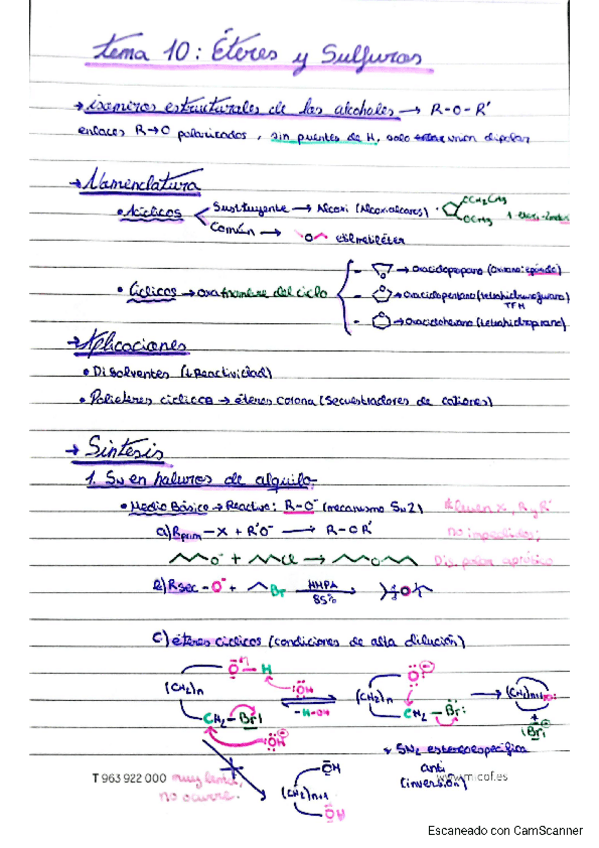 Tema 10: Éteres y Sulfuros
→ isómeros estructurales de los alcoholes → R-O-R'
enlaces R→O polarizados, sin puentes de H, solo unión dipolar
→ Nomenclatura
• Acíclicos
Sustituyente → Alcoxi (Alcoxialcanos)
OCH₂CH₃
OCH₃
Común → etilmetiléter
• Cíclicos → oxa + nombre del ciclo
- → oxaciclopropano (oxirano: epóxido)
- → oxaciclopentano (tetrahidrofurano)
TFH
- → oxaciclohexano (tetrahidropirano)
→ Aplicaciones
• Disolventes (↓Reactividad)
• Poliéteres cíclicos → éteres corona (Secuestradores de cationes)
→ Síntesis
1. SN en haluros de alquilo
• Medio Básico → Reactivo: R-O⁻ (mecanismo SN2)
* Buen X, R y R'
a) Rprim-X + R'O⁻ → R-OR'
no impedidos;
O⁻ + Cl → O
Dis. polar aprótico
b) Rsec-O⁻ + Br HMPA
85%
c) éteres cíclicos (condiciones de alta dilución)
O-H
(CH₂)n
:ÖH
-H-OH
CH₂-Br
:ÖH
(CH₂)n
CH₂-Br:
(CH₂)n+1 O:
+
:Br:
* SN2 estereoespecífica
anti
(inversión)
muy lenta,
no ocurre.
(CH₂)n+1
OH
OH
T 963 922 000
www.micof.es
Escaneado con CamScanner